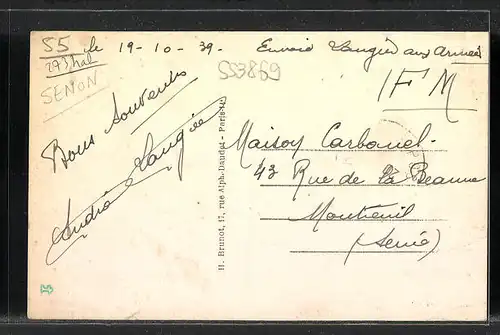 55 le 19-10-39. Envoi Laugier aux Armées
SENON
553869
FM
Bons Souvenirs
André Laugier
H. Brunot, 17, rue Alph.-Daudet - Paris
Maison Carbonel.
43 Rue de la Beaune
Montreuil
(Seine)